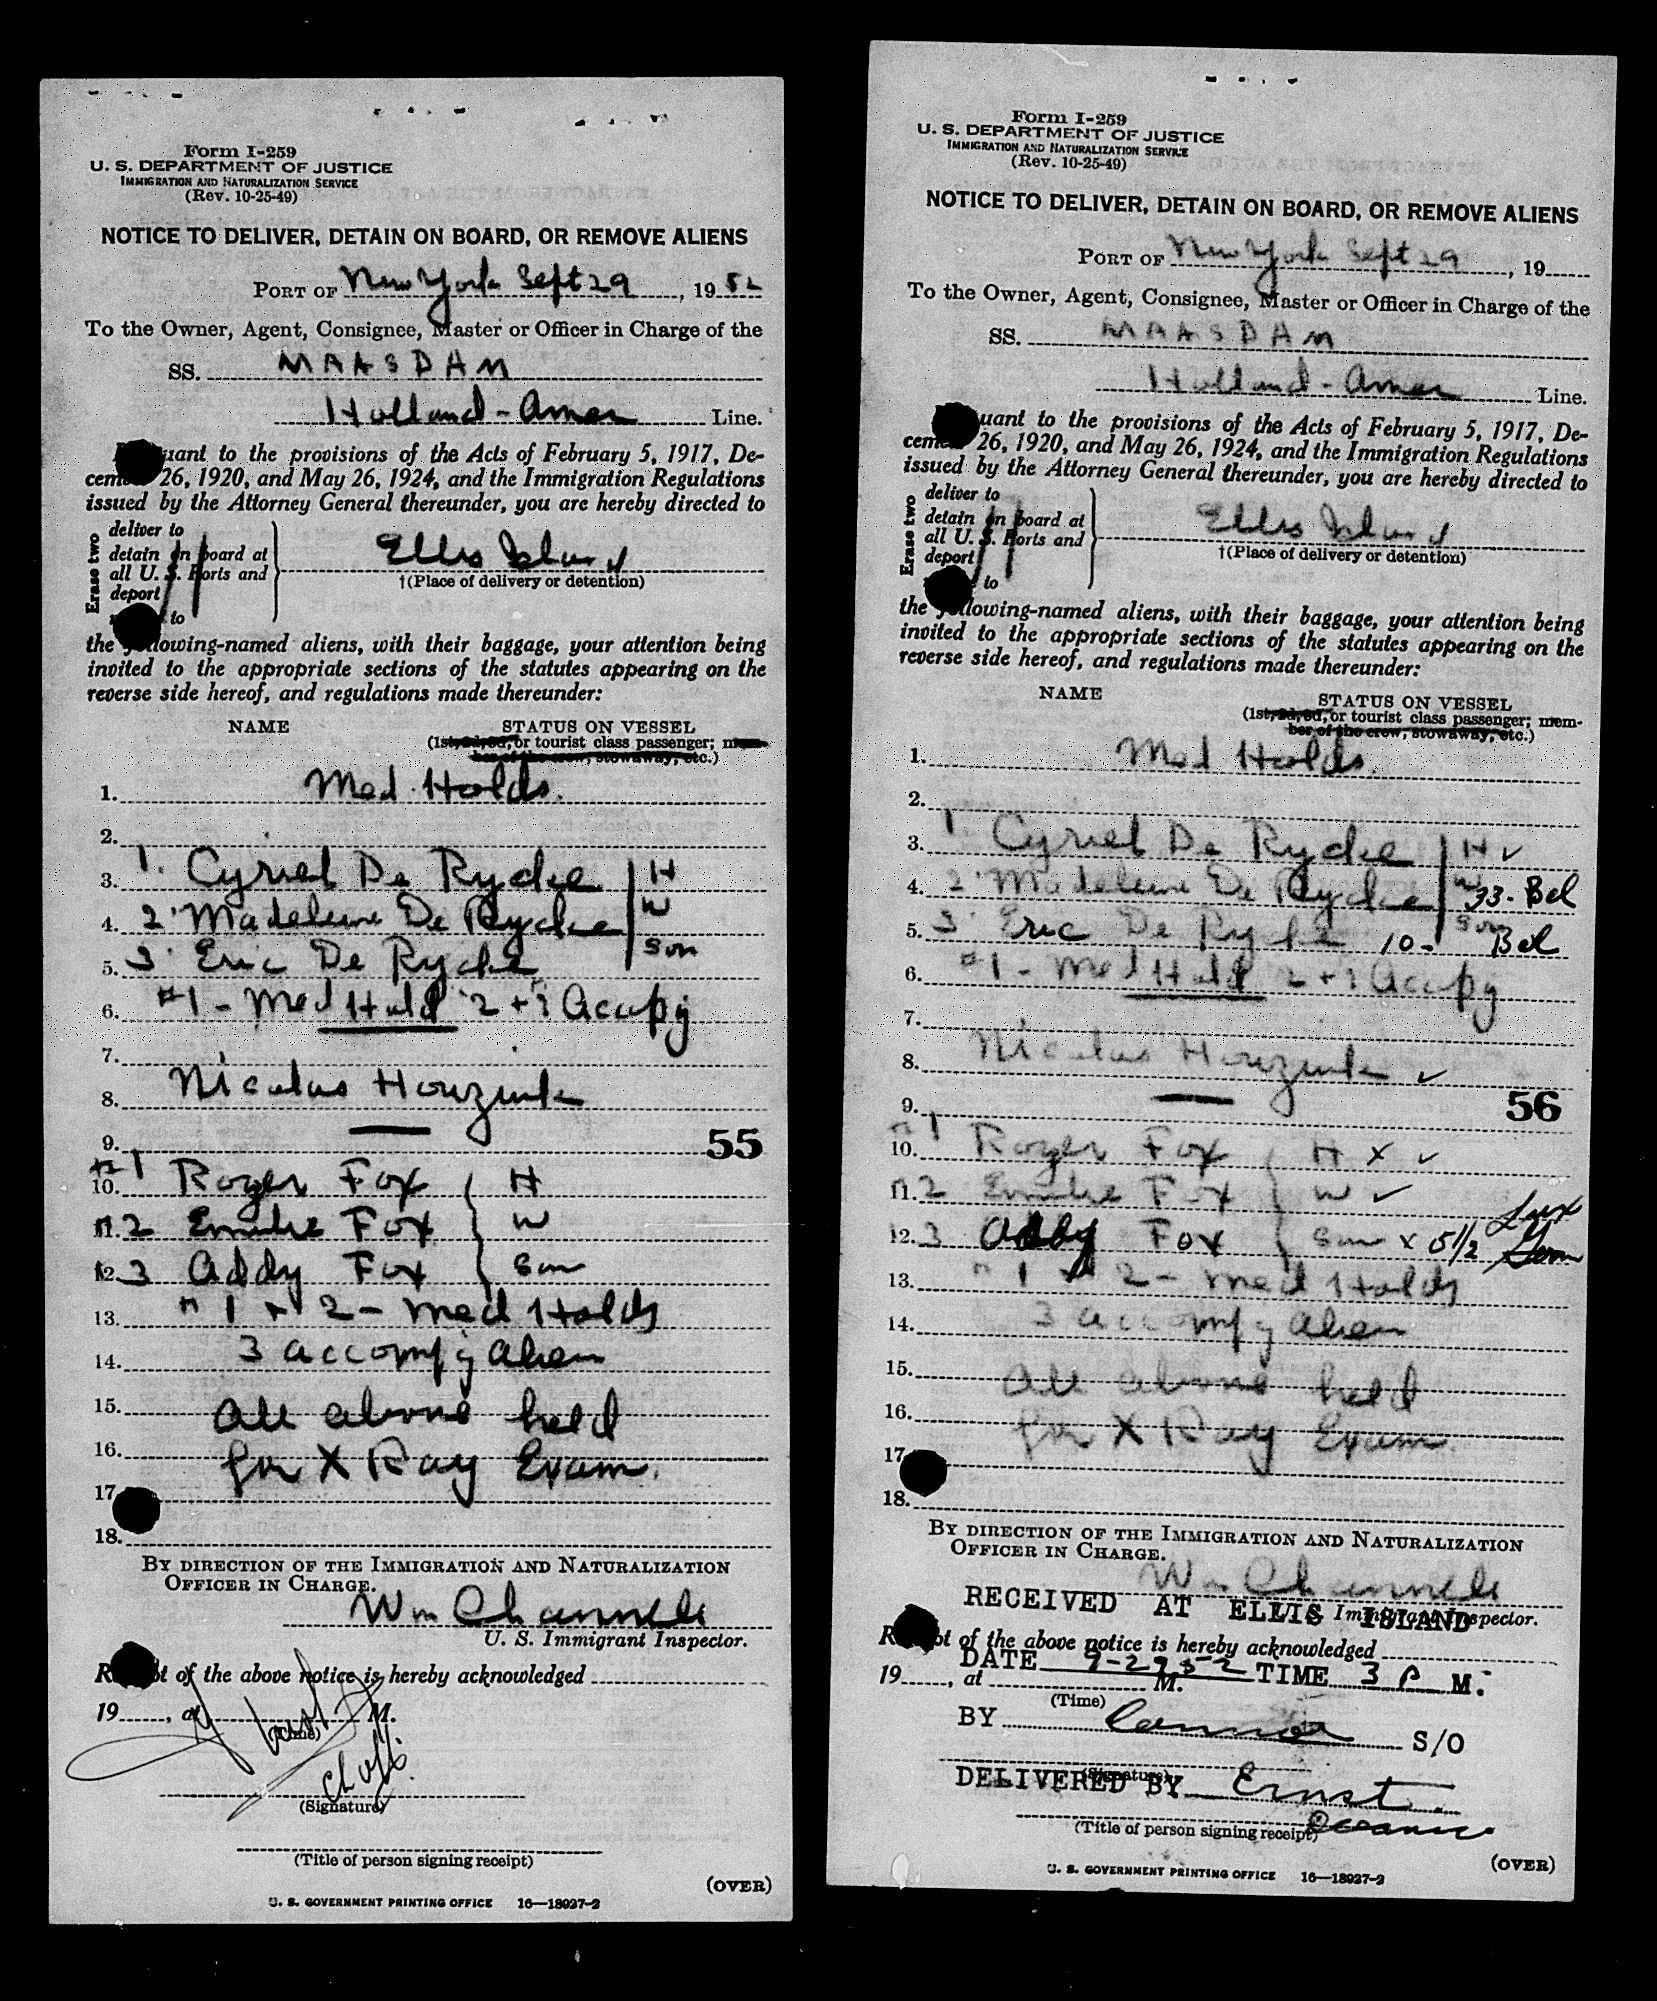 Form I-259
U. S. DEPARTMENT OF JUSTICE
IMMIGRATION AND NATURALIZATION SERVICE
(Rev. 10-25-49)
NOTICE TO DELIVER, DETAIN ON BOARD, OR REMOVE ALIENS
PORT OF New York Sept 29, 19 52
To the Owner, Agent, Consignee, Master or Officer in Charge of the
SS. MAASDAM
Holland-Amer Line.
uant to the provisions of the Acts of February 5, 1917, De-
cem 26, 1920, and May 26, 1924, and the Immigration Regulations
issued by the Attorney General thereunder, you are hereby directed to
Erase two
deliver to
detain on board at
all U. S. Ports and
deport
to
Ellis Island
†(Place of delivery or detention)
the following-named aliens, with their baggage, your attention being
invited to the appropriate sections of the statutes appearing on the
reverse side hereof, and regulations made thereunder:
NAME STATUS ON VESSEL
(1st, 2d, 3d, or tourist class passenger; mem-
ber of the crew, stowaway, etc.)
1. Med. Holds.
2.
3. 1. Cyriel De Rycke H
4. 2. Madeleine De Rycke W
5. 3. Eric De Rycke Son
6. #1 - Med Hold 2 + 3 Accpg
7.
8. Nicolas Houzink
9. 55
10. #1 Roger Fox H
11. 2 Emilie Fox W
12. 3 Addy Fox Son
13. " 1 + 2 - Med Holds
14. 3 accompg alien
15. All above held
16. for X Ray Exam.
17.
18.
BY DIRECTION OF THE IMMIGRATION AND NATURALIZATION
OFFICER IN CHARGE.
Wm Channels
U. S. Immigrant Inspector.
R t of the above notice is hereby acknowledged
19 , at M.
(Time)
(Signature)
(Title of person signing receipt)
(OVER)
U. S. GOVERNMENT PRINTING OFFICE 16—18927-2
Form I-259
U. S. DEPARTMENT OF JUSTICE
IMMIGRATION AND NATURALIZATION SERVICE
(Rev. 10-25-49)
NOTICE TO DELIVER, DETAIN ON BOARD, OR REMOVE ALIENS
PORT OF New York Sept 29, 19
To the Owner, Agent, Consignee, Master or Officer in Charge of the
SS. MAASDAM
Holland-Amer Line.
uant to the provisions of the Acts of February 5, 1917, De-
cem 26, 1920, and May 26, 1924, and the Immigration Regulations
issued by the Attorney General thereunder, you are hereby directed to
Erase two
deliver to
detain on board at
all U. S. Ports and
deport
to
Ellis Island
†(Place of delivery or detention)
the following-named aliens, with their baggage, your attention being
invited to the appropriate sections of the statutes appearing on the
reverse side hereof, and regulations made thereunder:
NAME STATUS ON VESSEL
(1st, 2d, 3d, or tourist class passenger; mem-
ber of the crew, stowaway, etc.)
1. Med Holds.
2.
3. 1. Cyriel De Rycke H ✓
4. 2. Madeleine De Rycke W 33 - Bel
5. 3. Eric De Rycke 10 - Son Bel
6. #1 - Med Hold 2 + 3 Accpg
7.
8. Nicolas Houzink ✓
9. 56
10. #1 Roger Fox H X ✓
11. 2 Emilie Fox W ✓ Lux
12. 3 Addy Fox Son x 5 1/2 Germ
13. " 1 + 2 - Med Holds
14. 3 accompg alien
15. All above held
16. for X Ray Exam.
17.
18.
BY DIRECTION OF THE IMMIGRATION AND NATURALIZATION
OFFICER IN CHARGE.
Wm Channels
RECEIVED AT ELLIS ISLAND
Immigrant Inspector.
R t of the above notice is hereby acknowledged
DATE 9-29-52 TIME 3 P M.
19 , at M.
(Time)
BY Connor S/O
(Signature)
DELIVERED BY Ernst
Oceanic
(Title of person signing receipt)
(OVER)
U. S. GOVERNMENT PRINTING OFFICE 16—18927-2